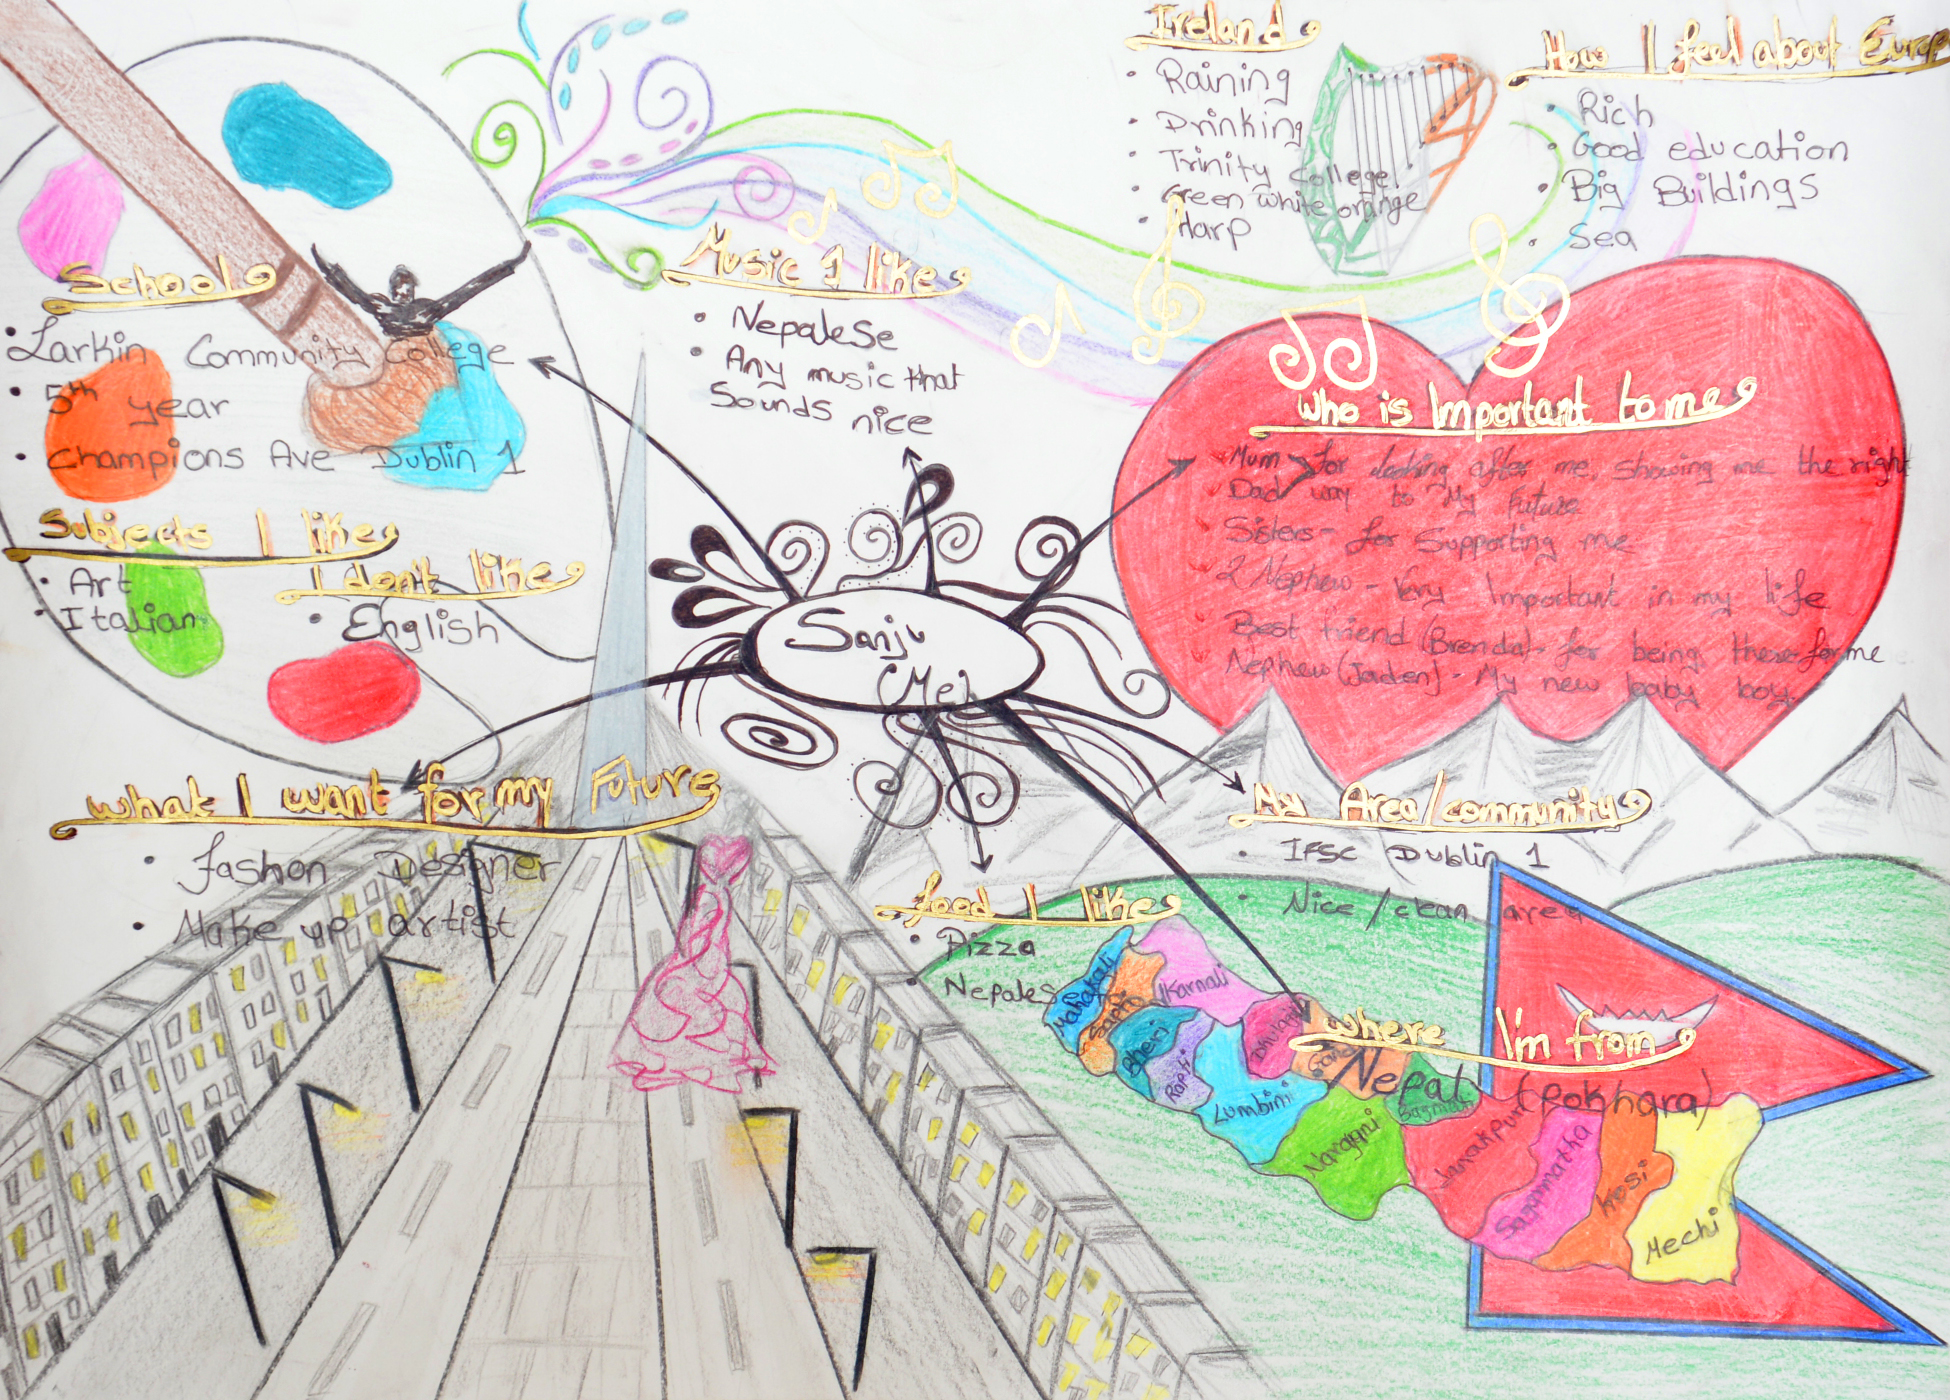 Ireland
• Raining
• Drinking
• Trinity College
• Green white orange
• Harp
How I feel about Europ
• Rich
• Good education
• Big Buildings
• Sea
School
• Larkin Community College
• 5th year
• Champions Ave Dublin 1
Subjects I like
• Art
• Italian
I don't like
• English
Music I like
• Nepalese
• Any music that
Sounds nice
Who is Important to me
Mum > for looking after me, showing me the right
Dad way to My Future
Sisters - for Supporting me
2 Nephew - Very Important in my life
Best friend (Brenda) - for being there for me
Nephew (Jaden) - My new baby boy.
Sanju
(Me)
What I want for my Future
• Fashon Designer
• Make up artist
My Area/community
• IFSC Dublin 1
• Nice / clean area
food I like
• Pizza
• Nepalese
where I'm from
Nepal (Pokhara)
Mahakali
Seti
Karnali
Bheri
Rapti
Dhulagiri
Gand
Lumbini
Bagmati
Narayni
Janakpur
Sagarmatha
Kosi
Mechi